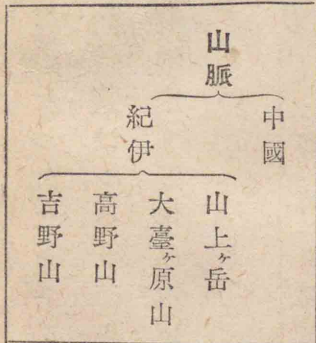 山脈
中國
紀伊
山上ヶ岳
大臺ヶ原山
高野山
吉野山